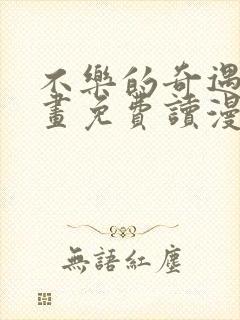 不樂的奇遇
畫免費讀漫
無語紅塵